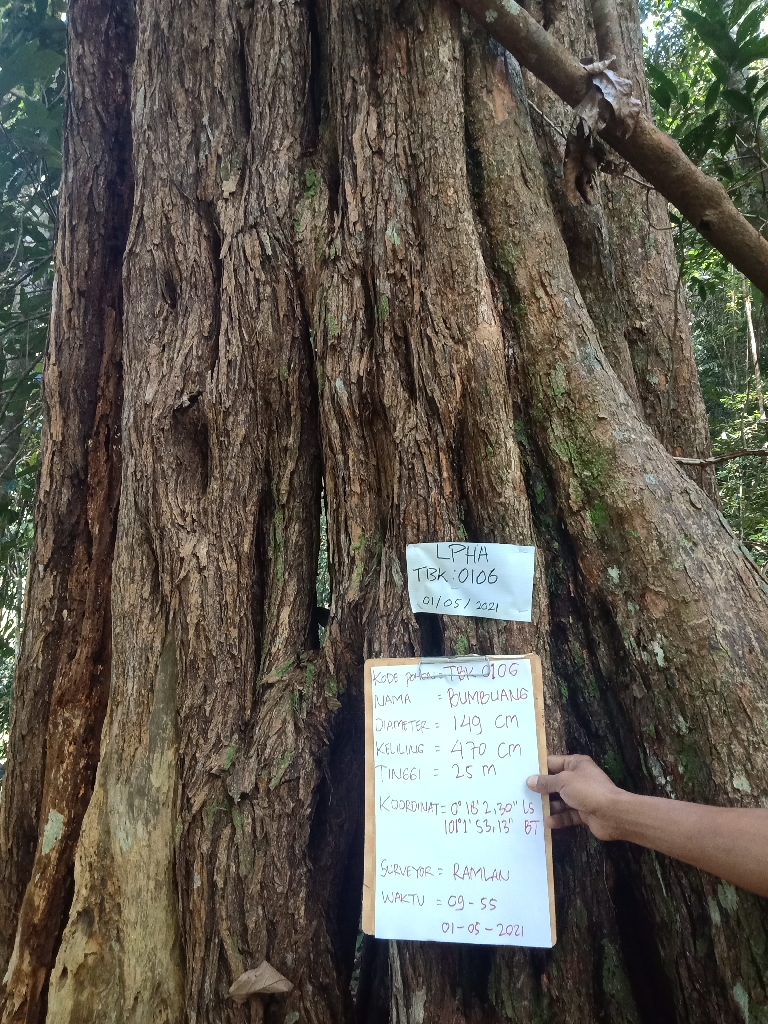 LPHA
TBK:0106
01/05/2021
KODE POHON = TBK 0106
NAMA = BUMBUANG
DIAMETER = 149 CM
KELILING = 470 CM
TINGGI = 25 M
KOORDINAT = 0° 18' 2,30" LS
101°1' 53,13" BT
SURVEYOR = RAMLAN
WAKTU = 09-55
01-05-2021